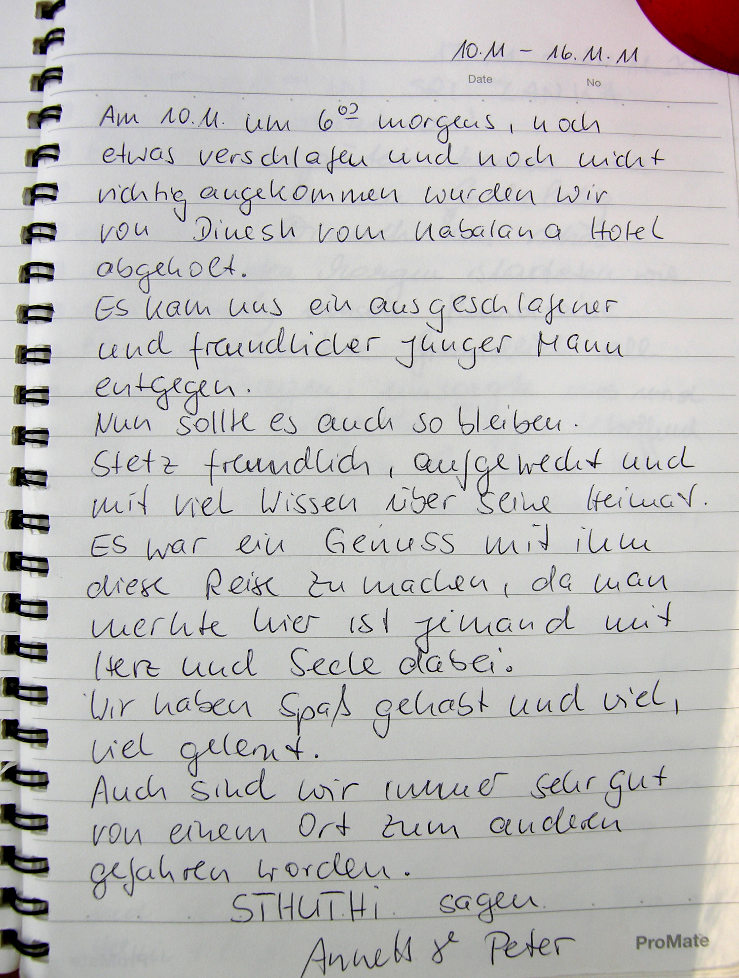 10.11 - 16.11.11
Date No
Am 10.11. um 6⁰² morgens, noch
etwas verschlafen und noch nicht
richtig angekommen wurden wir
von Dinesh vom Kabalana Hotel
abgeholt.
Es kam uns ein ausgeschlafener
und freundlicher junger Mann
entgegen.
Nun sollte es auch so bleiben.
Stetz freundlich, aufgeweckt und
mit viel Wissen über seine Heimat.
Es war ein Genuss mit ihm
diese Reise zu machen, da man
merkte hier ist jemand mit
Herz und Seele dabei.
Wir haben Spaß gehabt und viel,
viel gelernt.
Auch sind wir immer sehr gut
von einem Ort zum anderen
gefahren worden.
STHUTHi sagen
Annett & Peter
ProMate